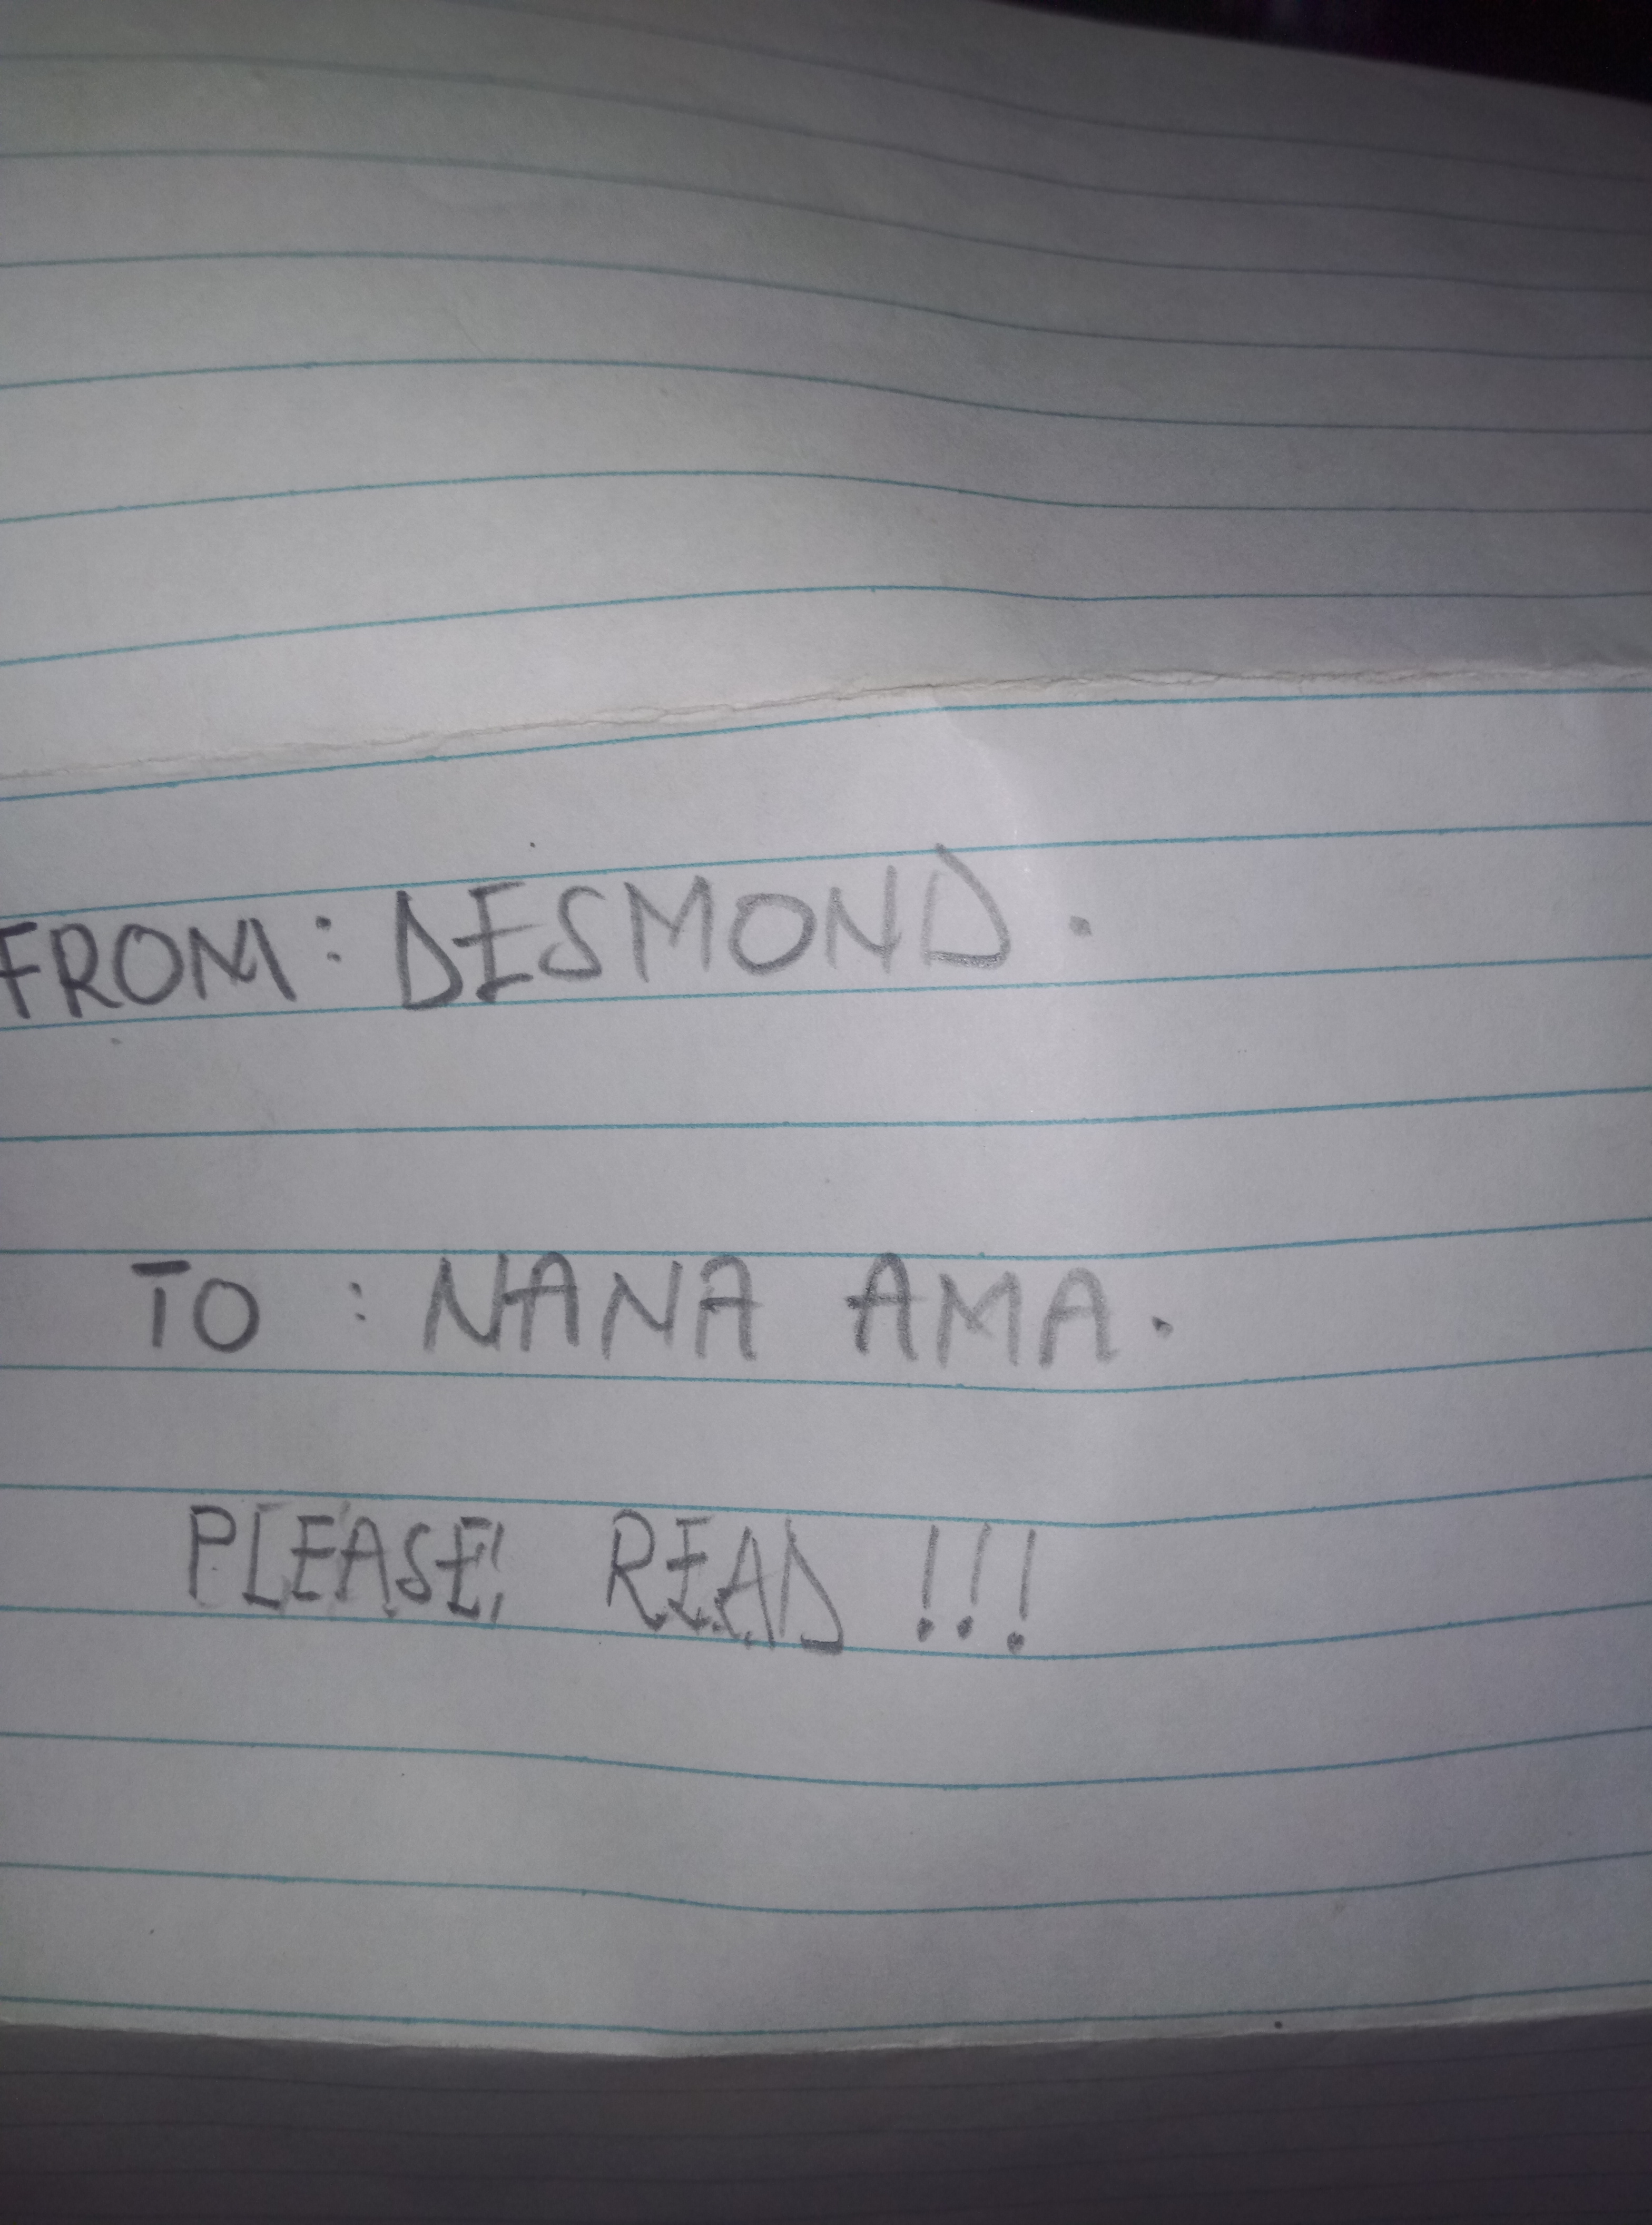 FROM: DESMOND.
TO : NANA AMA.
PLEASE! READ !!!